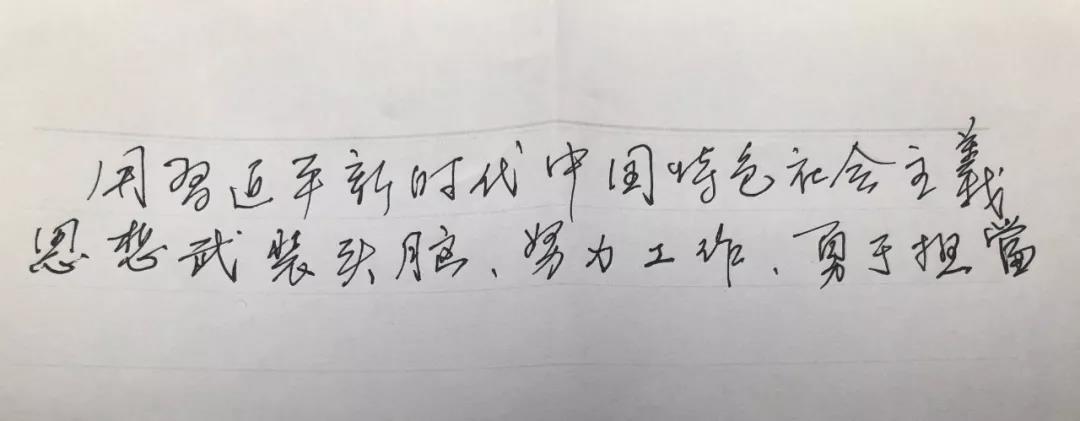 用习近平新时代中国特色社会主義
思想武装头脑、努力工作、勇于担當